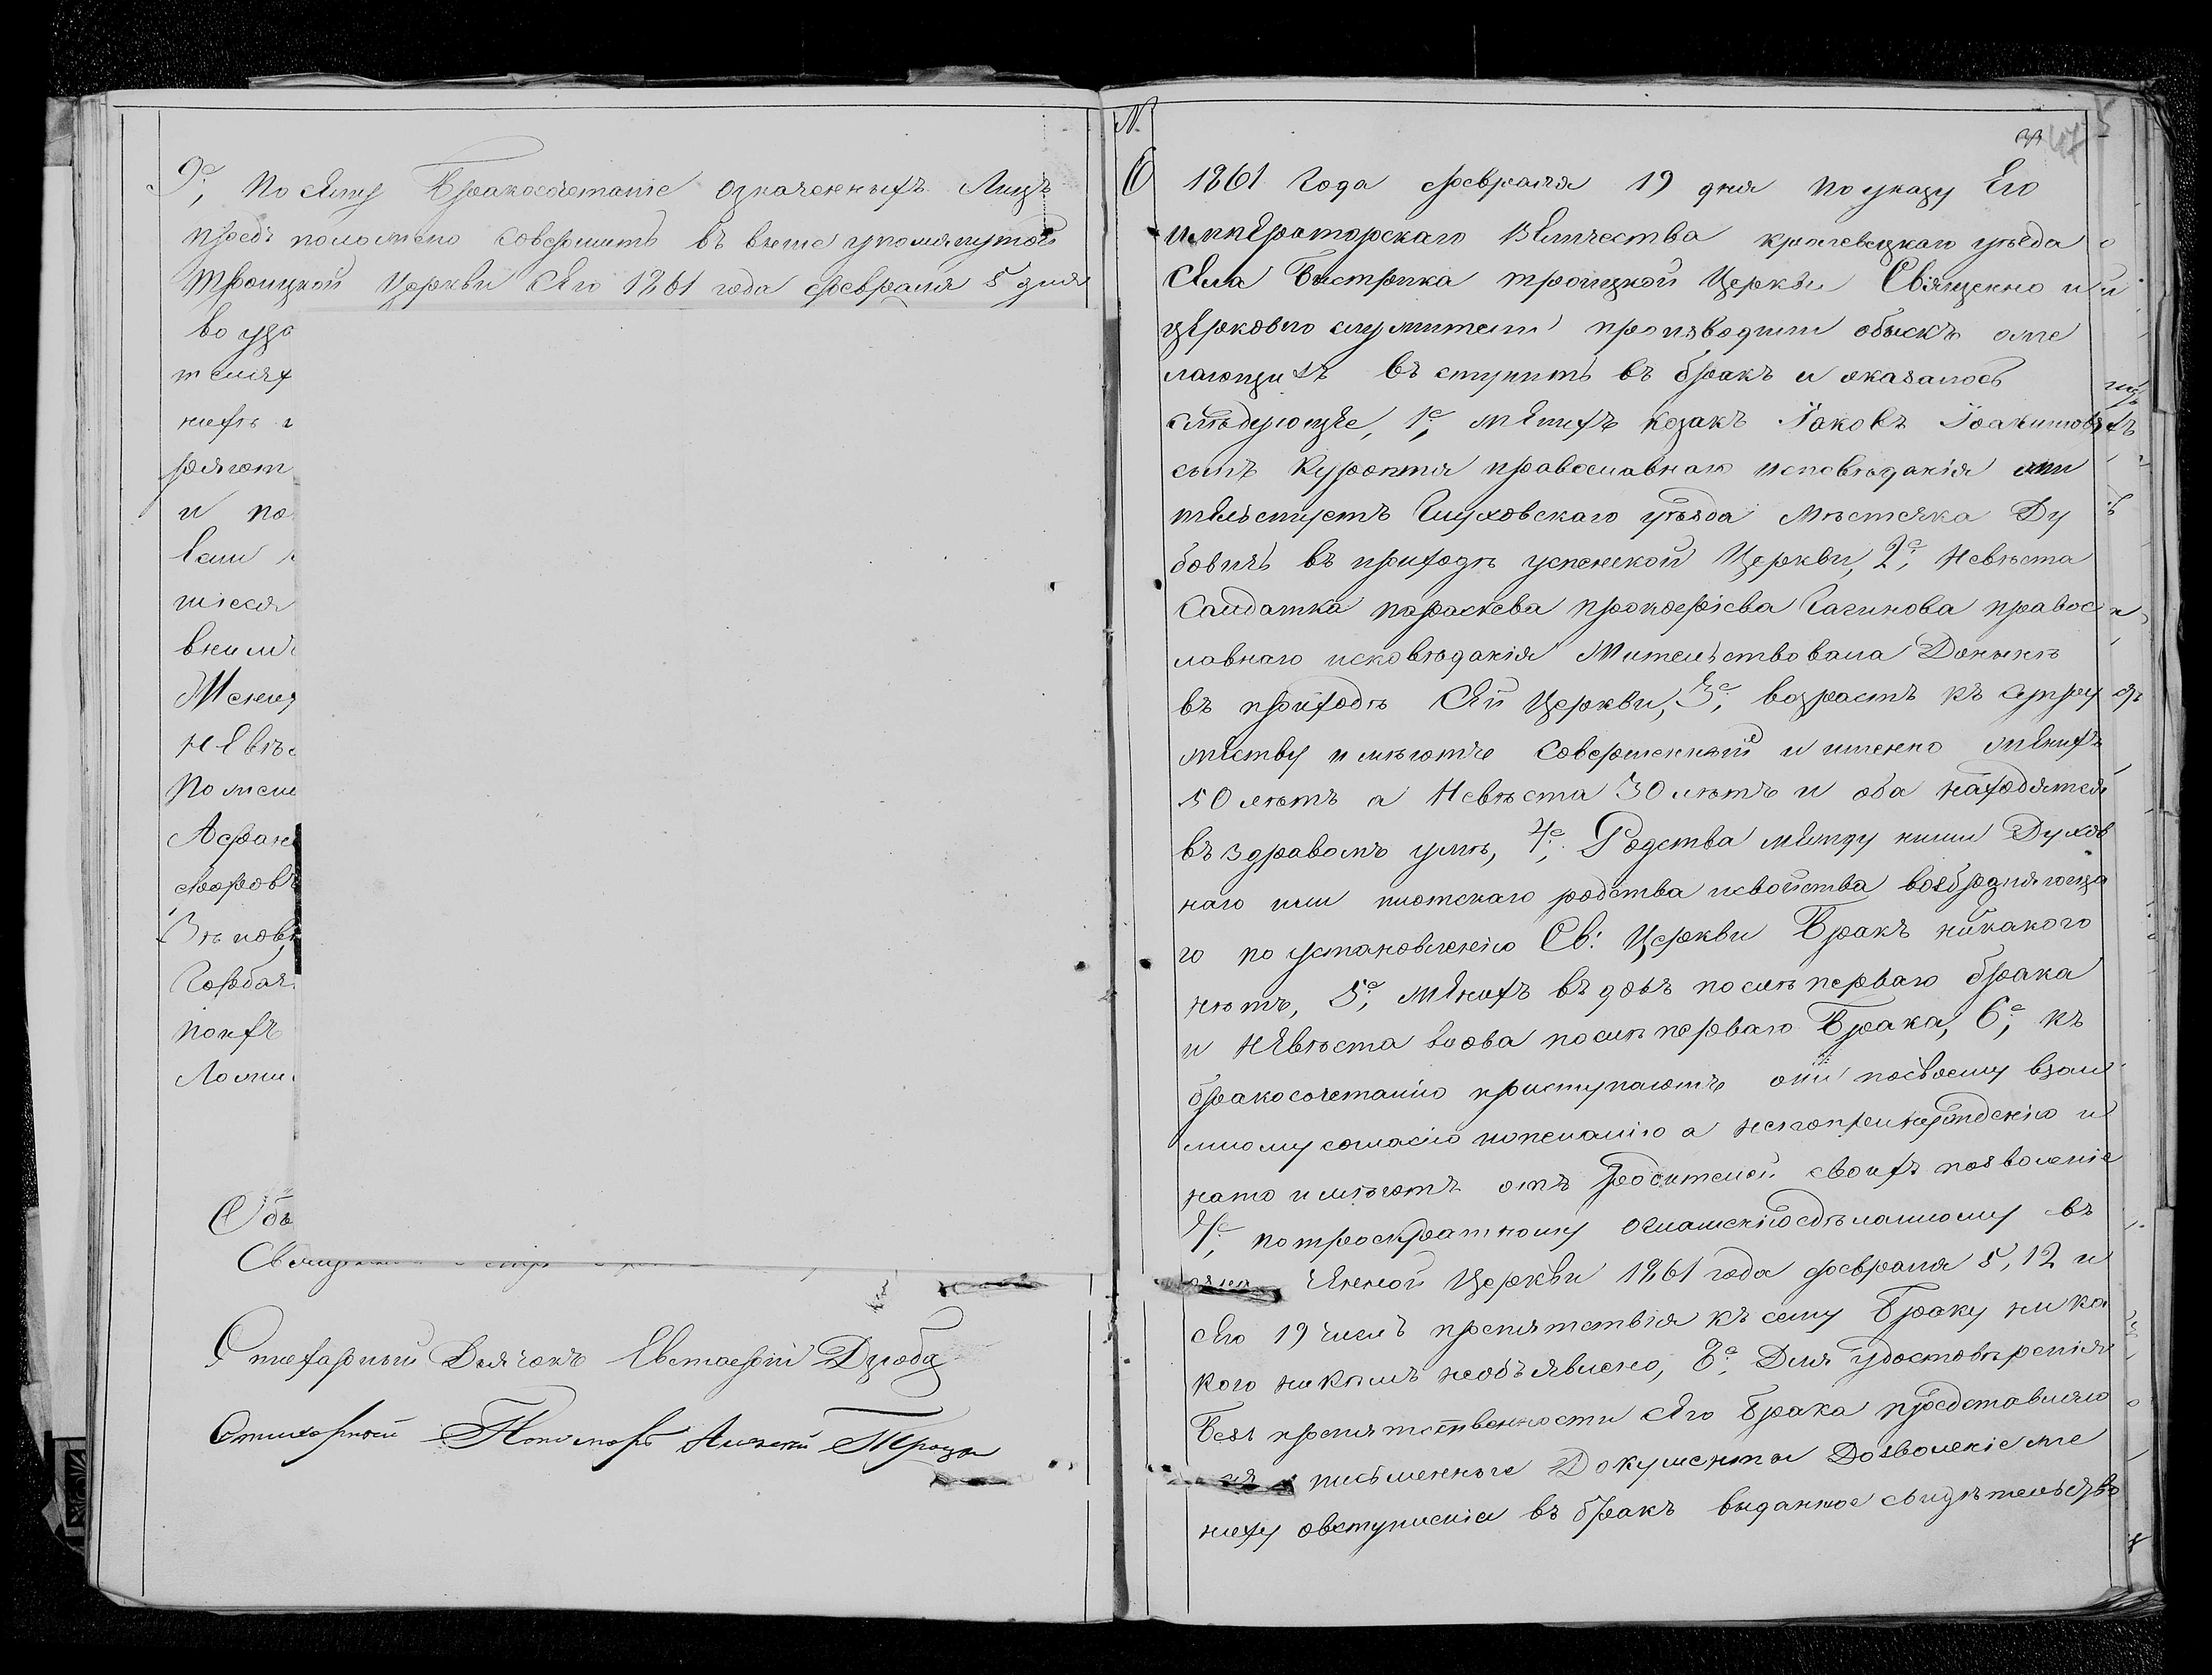 9е, по сему Бракосочетание означенныхъ Лицъ
предъ положено совершить въ выше упомянутой
Троицкой Церкви сего 1861 года февраля 5 дня
во уза
телях
нихъ
ряют
и по
вели
шеся
Жених
невѣс
Помеще
Афана
Горбач
Обы
Стихарный Дьячокъ Евстафій Дзюба
Стихарный Пономарь
N.
6 1861 Года февраля 19 дня по указу Его
императорскаго Величества кролевецкаго уѣзда
села Быстрика троицкой Церкви Священно и
церковно служители производили обыскъ оже
лающихъ въ ступить въ бракъ и оказалось
слѣдующее, 1е, женихъ козакъ Іаковъ Іоакимовъ
сынъ Курохтя православнаго исповѣданія жи
тельствуетъ Глуховскаго уѣзда Мѣстечка Ду
бовичъ въ приходѣ успенской Церкви, 2е, Невѣста
Салдатка параскева прокофіева Гагинова правос
лавнаго исповѣданія Жительствовала Донынѣ
въ приходѣ сей Церкви, 3е, возрастъ къ супру
жеству имѣютъ совершенный и именно женихъ
50 летъ а Невѣста 30 лѣтъ и оба находятся
въ здравомъ умѣ, 4е, Родства между ними Духов
наго или плотскаго родства исвойства возбраняюща
го по установленію Св: Церкви Бракъ никакого
нѣтъ, 5е, женихъ вдовъ послѣ перваго брака
и невѣста вдова послѣ перваго Брака, 6е, къ
бракосочетанію приступаютъ они посвоему взаи
мному согласію ижеланію а непопринужденію и
нато имѣютъ отъ родителей своихъ позволеніе
7е, потроекратному оглашенію сдѣланному въ
означенной Церкви 1861 года февраля 5, 12 и
сего 19 числъ препятствія къ сему Браку ника
кого никемъ необъявлено, 8е, Для удостовѣренія
Безъ препятственности сего брака представляю
ся письменные Документы Дозволеніе же
ниху овступленіи въ бракъ выданное свидѣтельство